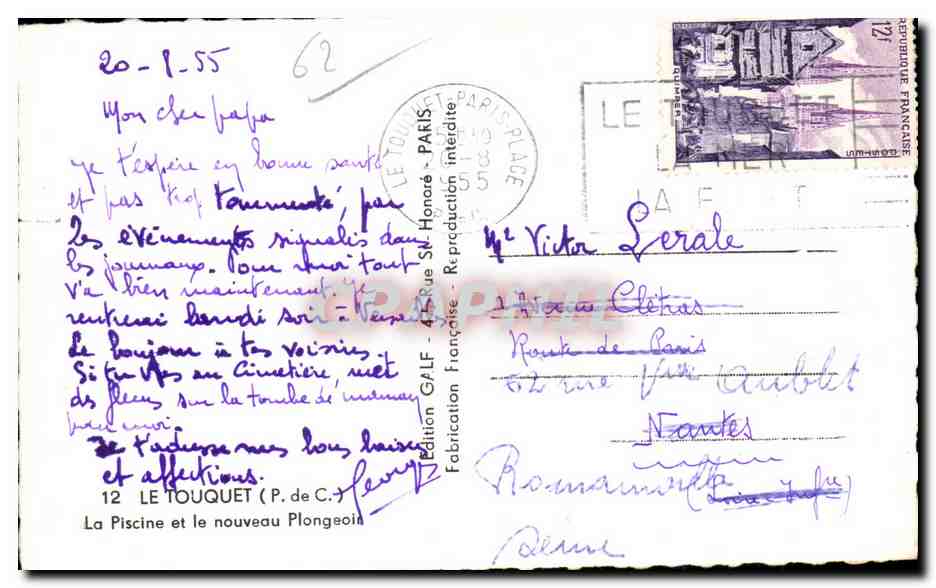 20-8-55
62
Mon cher papa
je t'espère en bonne santé
et pas trop tourmenté, par
les événements signalés dans
les journaux. Pour moi tout
va bien maintenant. Je
rentrerai lundi soir à Versailles
Le bonjour à tes voisins.
Si tu vas au Cimetière, met
des fleurs sur la tombe de maman
pour moi.
Je t'adresse mes bons baisers
et affections.
Georges
12 LE TOUQUET (P. de C.)
La Piscine et le nouveau Plongeoir
Edition GALF - 41, Rue St-Honoré - PARIS
Fabrication Française - Reproduction interdite
LE TOUQUET-PARIS-PLAGE
REPUBLIQUE FRANÇAISE
12f
POSTES
QUIMPER
LE T
LA F T
Mr Victor Lerale
Route de Paris
62 rue Aublet
Nantes
Seine
CPAPHIL